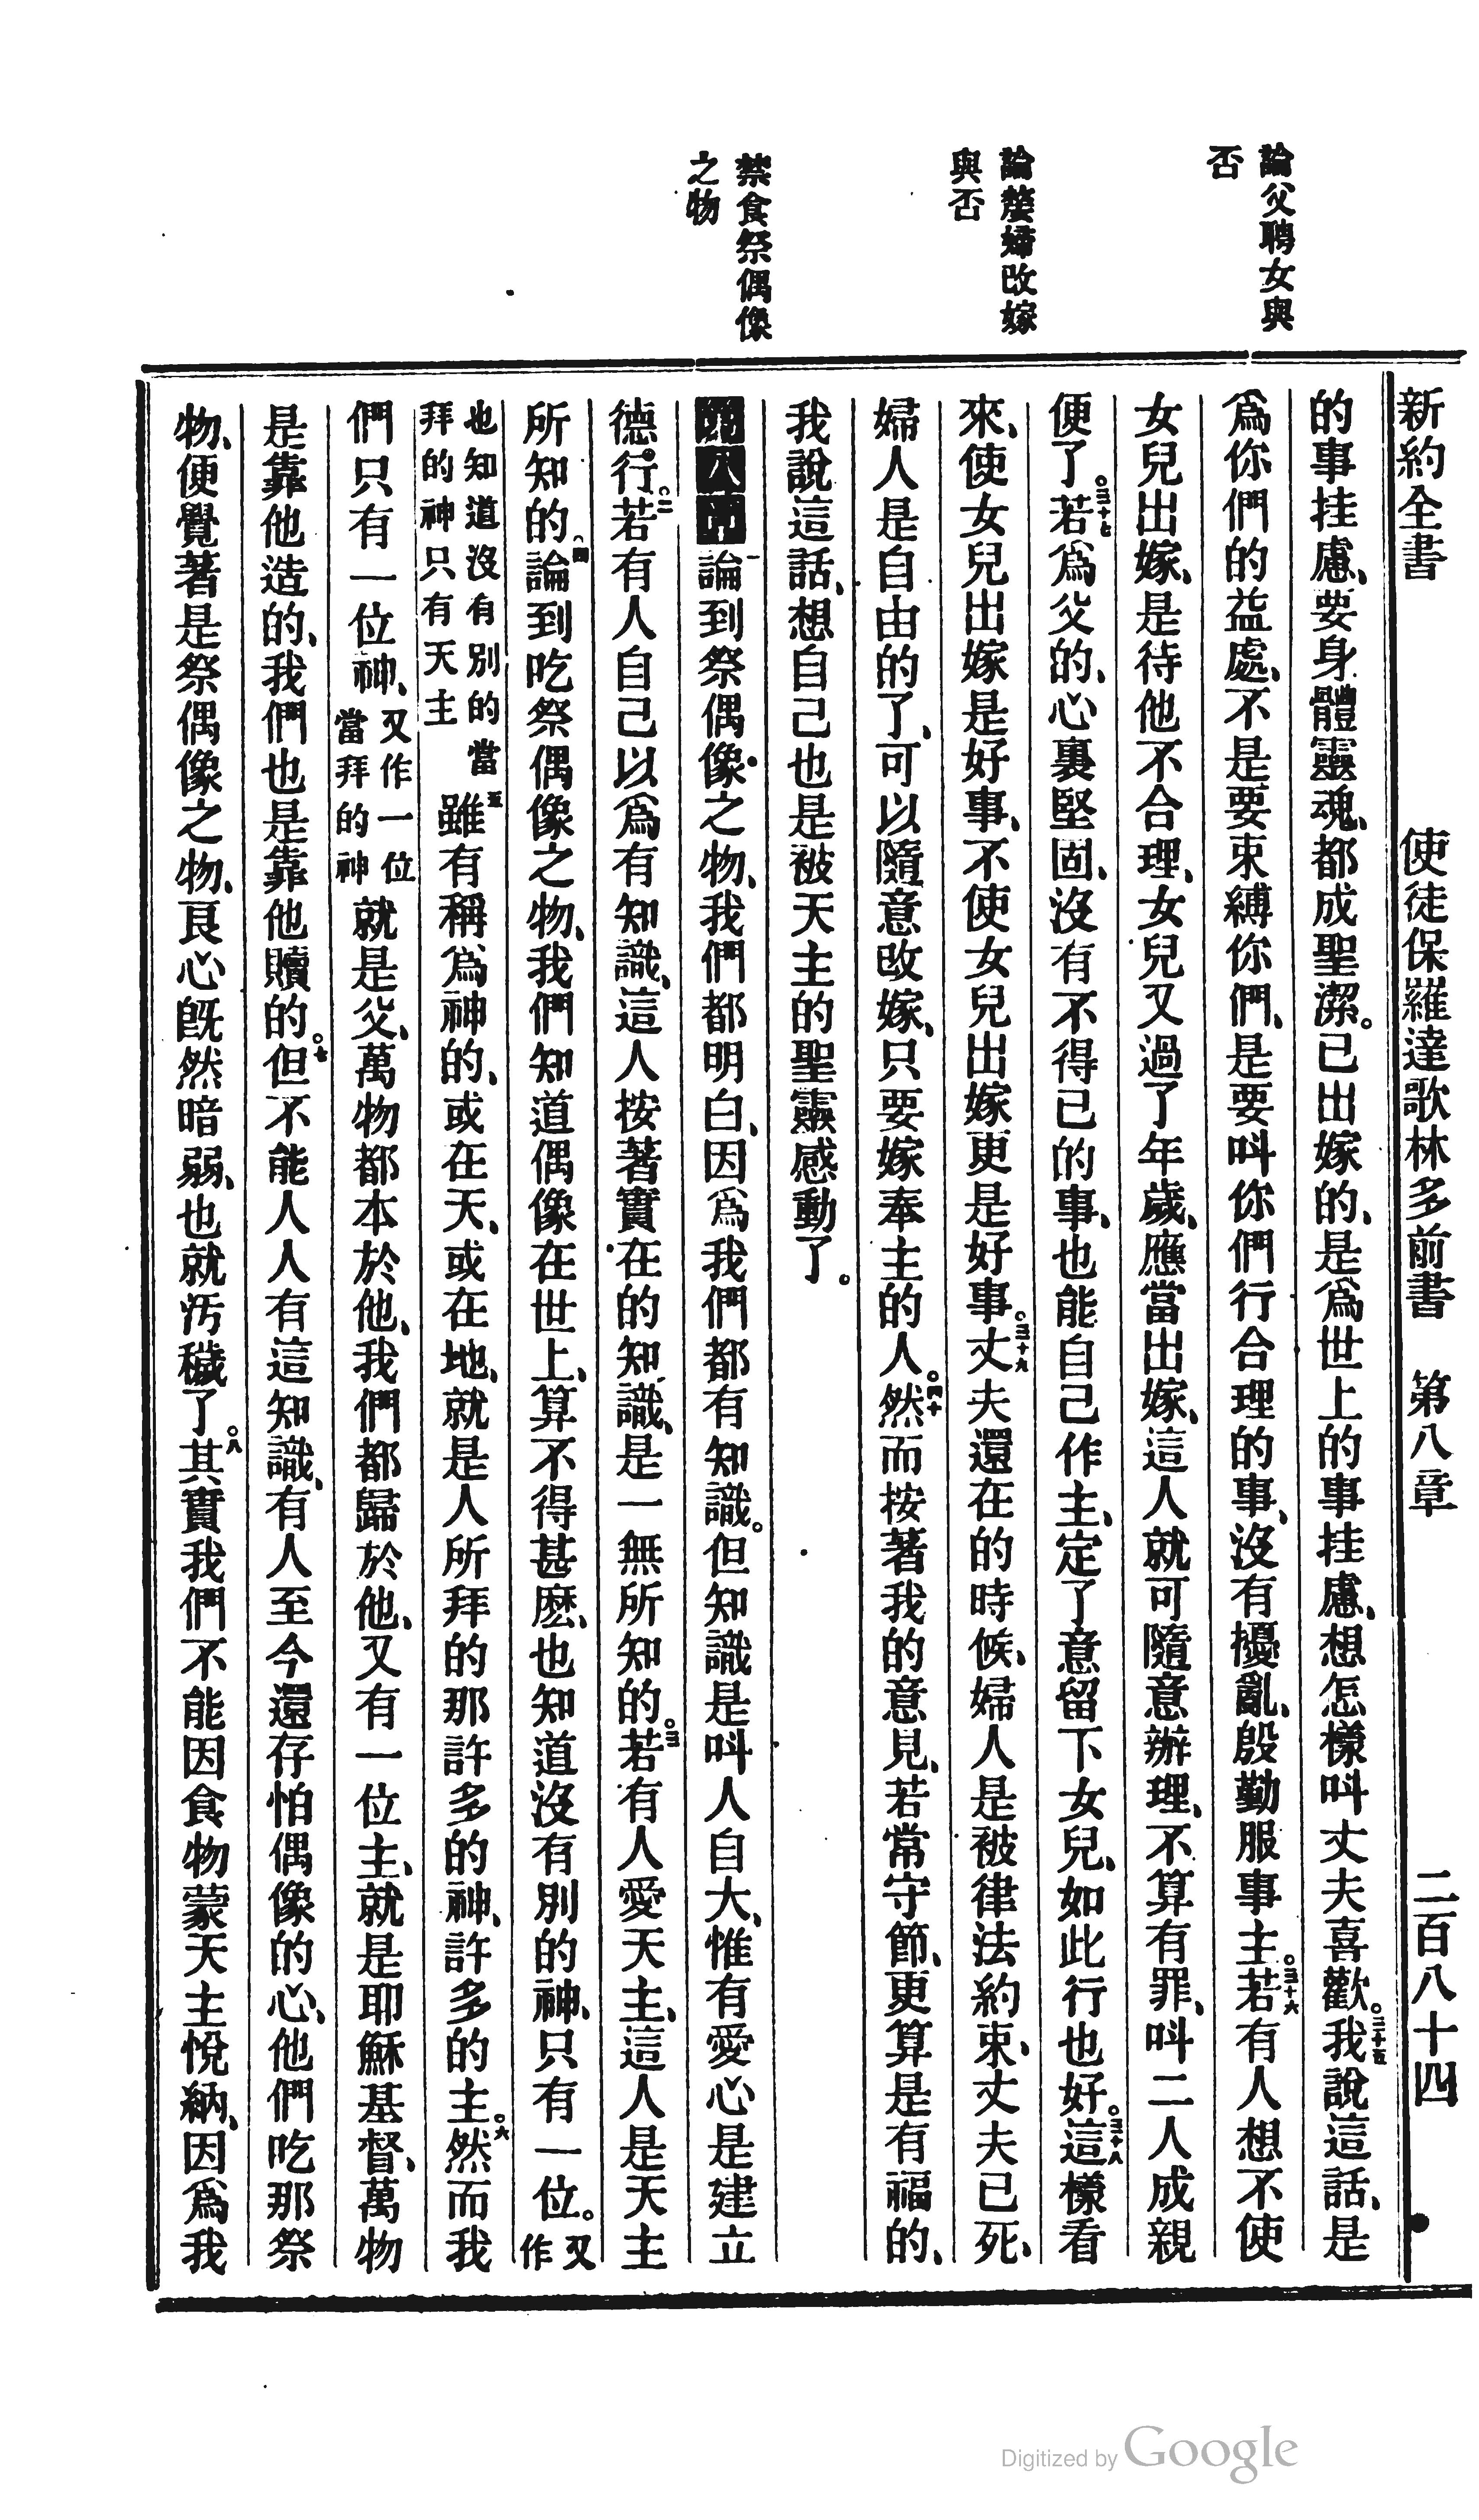 新約全書　使徒保羅達歌林多前書　第八章　二百八十四
論父聘女與
否
論嫠婦改嫁
與否
禁食祭偶像
之物
的事挂慮、要身體靈魂、都成聖潔。已出嫁的、是爲世上的事挂慮、想怎樣呌丈夫喜歡。三十五我說這話、是
爲你們的益處、不是要束縛你們、是要呌你們行合理的事、沒有擾亂、殷勤服事主。三十六若有人想不使
女兒出嫁、是待他不合理、女兒又過了年歲、應當出嫁、這人就可隨意辦理、不算有罪、呌二人成親
便了。三十七若爲父的、心裏堅固、沒有不得已的事、也能自己作主、定了意留下女兒、如此行也好。三十八這樣看
來、使女兒出嫁是好事、不使女兒出嫁更是好事。三十九丈夫還在的時候、婦人是被律法約束、丈夫已死、
婦人是自由的了、可以隨意改嫁、只要嫁奉主的人。四十然而按著我的意見、若常守節、更算是有福的、
我說這話、想自己也是被天主的聖靈感動了。
第八章一論到祭偶像之物、我們都明白、因爲我們都有知識。但知識是呌人自大、惟有愛心是建立
德行。二若有人自己以爲有知識、這人按著實在的知識、是一無所知的。三若有人愛天主、這人是天主
所知的。四論到吃祭偶像之物、我們知道偶像在世上、算不得甚麽、也知道沒有別的神、只有一位。又作
也知道沒有別的當
拜的神只有天主
五雖有稱爲神的、或在天、或在地、就是人所拜的那許多的神、許多的主。六然而我
們只有一位神、又作一位當拜的神就是父、萬物都本於他、我們都歸於他、又有一位主、就是耶穌基督、萬物
是靠他造的、我們也是靠他贖的。七但不能人人有這知識、有人至今還存怕偶像的心、他們吃那祭
物、便覺著是祭偶像之物、良心旣然暗弱、也就汚穢了。八其實我們不能因食物蒙天主悅納、因爲我
Digitized by Google